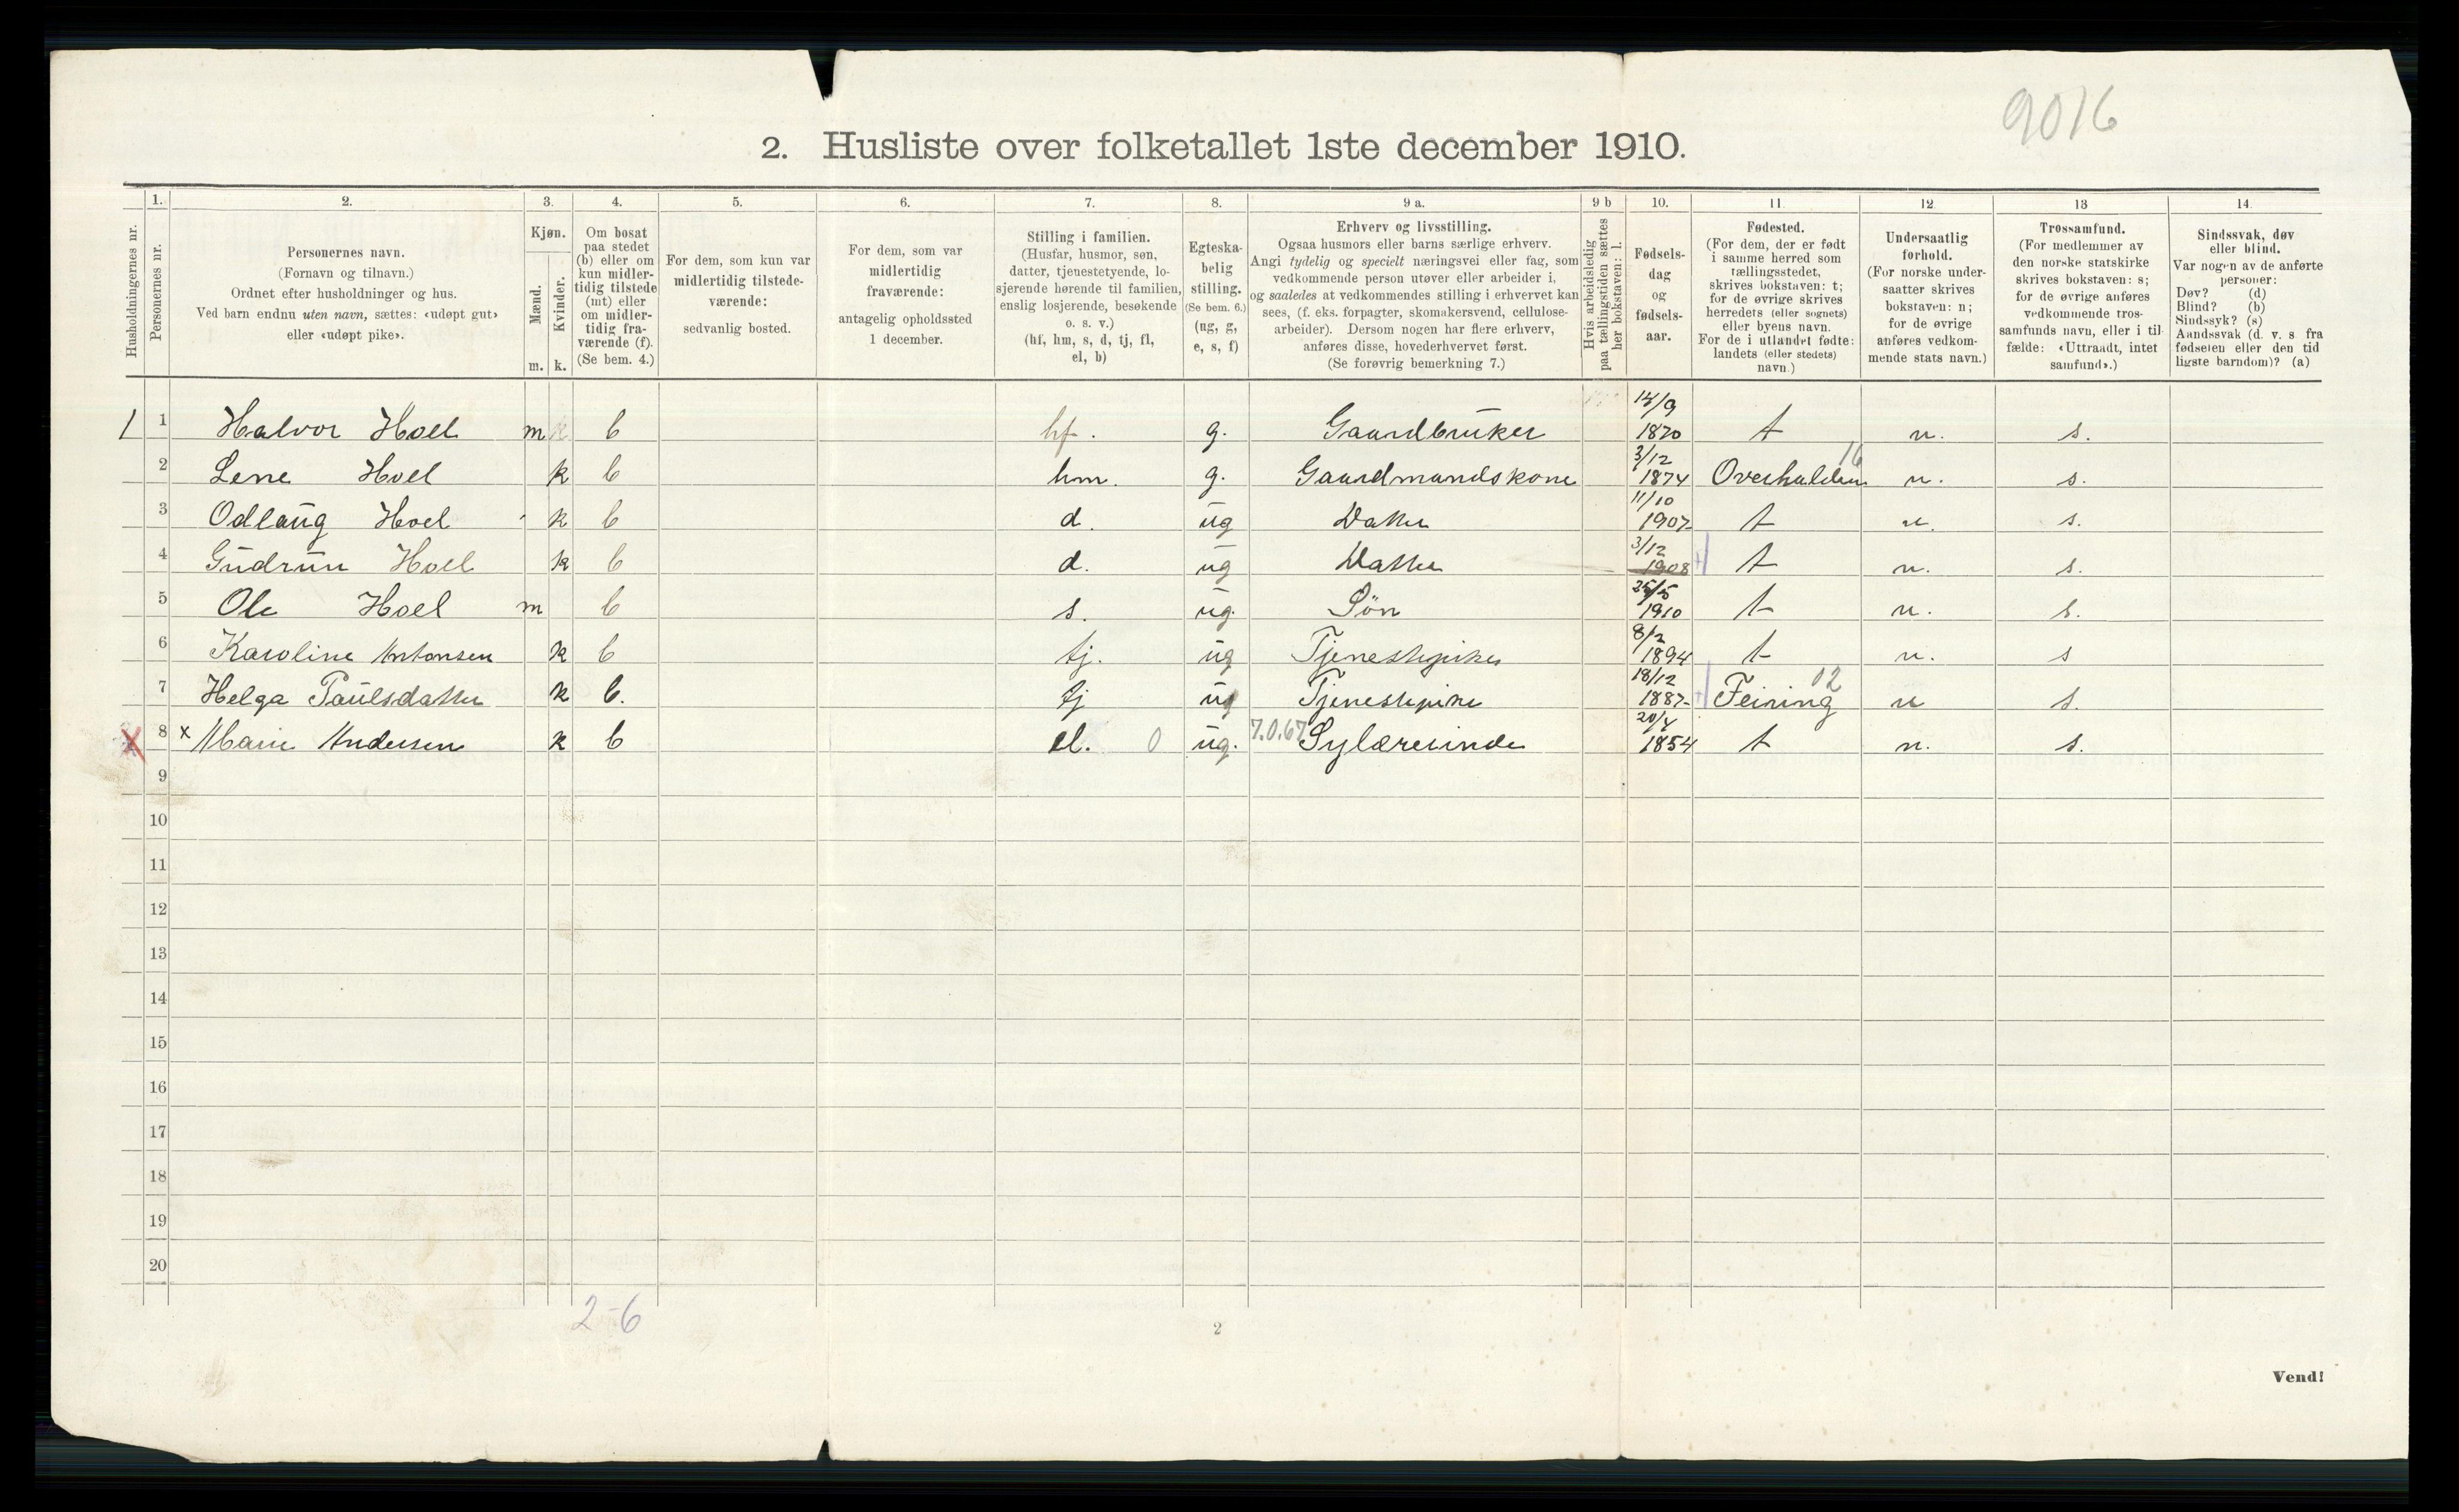 9016
2. Husliste over folketallet 1ste december 1910.
1. 2. 3. 4. 5. 6. 7. 8. 9 a. 9 b 10. 11. 12. 13 14.
Husholdningernes nr.
Personernes nr.
Personernes navn.
(Fornavn og tilnavn.)
Ordnet efter husholdninger og hus.
Ved barn endnu uten navn, sættes: «udøpt gut»
eller «udøpt pike».
Kjøn.
Mænd.
Kvinder.
m. k.
Om bosat
paa stedet
(b) eller om
kun midler-
tidig tilstede
(mt) eller
om midler-
tidig fra-
værende (f).
(Se bem. 4.)
For dem, som kun var
midlertidig tilstede-
værende:
sedvanlig bosted.
For dem, som var
midlertidig
fraværende:
antagelig opholdssted
1 december.
Stilling i familien.
(Husfar, husmor, søn,
datter, tjenestetyende, lo-
sjerende hørende til familien,
enslig losjerende, besøkende
o. s. v.)
(hf, hm, s, d, tj, fl,
el, b)
Egteska-
belig
stilling.
(Se bem. 6.)
(ug, g,
e, s, f)
Erhverv og livsstilling.
Ogsaa husmors eller barns særlige erhverv.
Angi tydelig og specielt næringsvei eller fag, som
vedkommende person utøver eller arbeider i,
og saaledes at vedkommendes stilling i erhvervet kan
sees, (f. eks. forpagter, skomakersvend, cellulose-
arbeider). Dersom nogen har flere erhverv,
anføres disse, hovederhvervet først.
(Se forøvrig bemerkning 7.)
Hvis arbeidsledig
paa tællingstiden sættes
her bokstaven: l.
Fødsels-
dag
og
fødsels-
aar.
Fødested.
(For dem, der er født
i samme herred som
tællingsstedet,
skrives bokstaven: t;
for de øvrige skrives
herredets (eller sognets)
eller byens navn.
For de i utlandet fødte:
landets (eller stedets)
navn.)
Undersaatlig
forhold.
(For norske under-
saatter skrives
bokstaven: n;
for de øvrige
anføres vedkom-
mende stats navn.)
Trossamfund.
(For medlemmer av
den norske statskirke
skrives bokstaven: s;
for de øvrige anføres
vedkommende tros-
samfunds navn, eller i til-
fælde: «Uttraadt, intet
samfund».)
Sindssvak, døv
eller blind.
Var nogen av de anførte
personer:
Døv? (d)
Blind? (b)
Sindssyk? (s)
Aandssvak (d. v. s fra
fødselen eller den tid
ligste barndom)? (a)
1 1 Halvor Hoel m b hf. g. Gaardbruker 14/9 1870 t n. s.
2 Lene Hoel k b hm. g. Gaardmandskone 3/12 1874 Overhalden 16 n. s.
3 Odlaug Hoel k b d. ug Datter 11/10 1907 t n. s.
4 Gudrun Hoel k b d. ug Datter 3/12 1908 t n. s.
5 Ole Hoel m b s. ug. Søn 25/5 1910 t n. s.
6 Karoline Antonsen k b tj. ug Tjenestepike 8/2 1894 t n. s
7 Helga Paulsdatter k b. tj ug Tjenestepike 18/12 1887 Feiring 02 n s.
8 x Marie Andersen k b el. 0 ug. 7.0.67 Sylærerinde 20/4 1854 t n. s.
9
10
11
12
13
14
15
16
17
18
19
20
2-6
2
Vend!